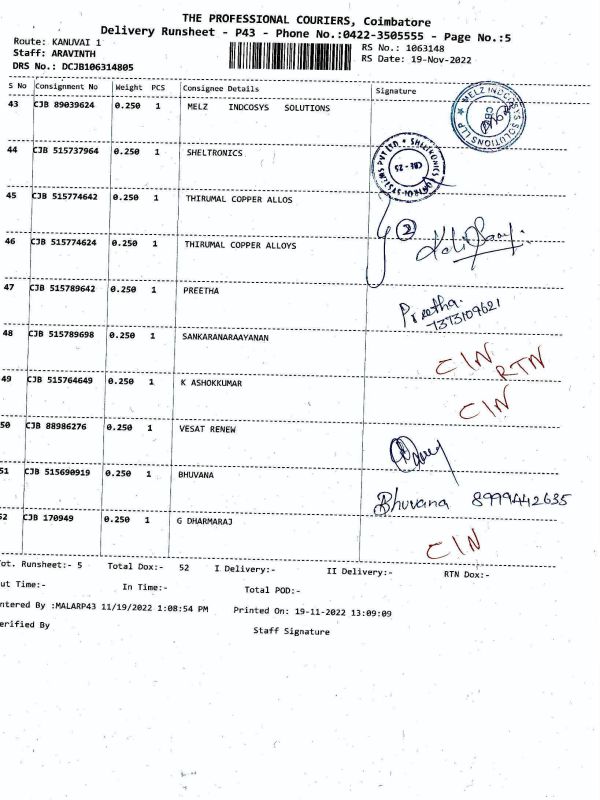 THE PROFESSIONAL COURIERS, Coimbatore
Delivery Runsheet - P43 - Phone No.:0422-3505555 - Page No.:5
Route: KANUVAI 1
Staff: ARAVINTH
DRS No.: DCJB106314805
RS No.: 1063148
RS Date: 19-Nov-2022
S No Consignment No Weight PCS Consignee Details Signature
43 CJB 89039624 0.250 1 MELZ INDCOSYS SOLUTIONS
MELZ INDCOSYS SOLUTIONS LLP
44 CJB 515737964 0.250 1 SHELTRONICS
SHELTRONICS CONTROL SYSTEMS PVT LTD
CBE - 25
45 CJB 515774642 0.250 1 THIRUMAL COPPER ALLOS
46 CJB 515774624 0.250 1 THIRUMAL COPPER ALLOYS
2
47 CJB 515789642 0.250 1 PREETHA
Preetha.
7373109621
48 CJB 515789698 0.250 1 SANKARANARAAYANAN
CIN RTN
49 CJB 515764649 0.250 1 K ASHOKKUMAR
CIN
50 CJB 88986276 0.250 1 VESAT RENEW
51 CJB 515690919 0.250 1 BHUVANA
Bhuvana 8999442635
52 CJB 170949 0.250 1 G DHARMARAJ
CIN
ot. Runsheet:- 5 Total Dox:- 52 I Delivery:- II Delivery:- RTN Dox:-
ut Time:- In Time:- Total POD:-
ntered By :MALARP43 11/19/2022 1:08:54 PM Printed On: 19-11-2022 13:09:09
erified By
Staff Signature